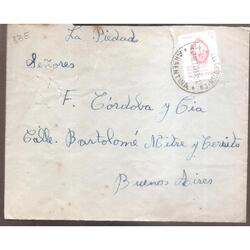 83E
La Piedad
Señores
F. Córdova y Cia
Calle. Bartolomé Mitre y Cerrito
Buenos Aires